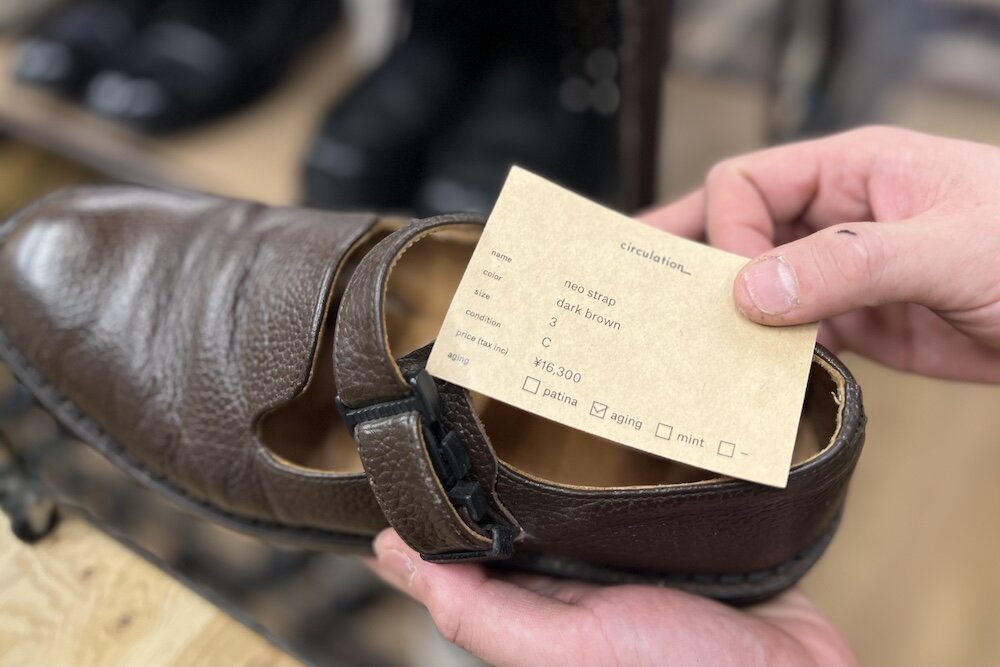 circulation_
name neo strap
color dark brown
size 3
condition C
price (tax inc) ¥16,300
aging ☐ patina ☑ aging ☐ mint ☐ –